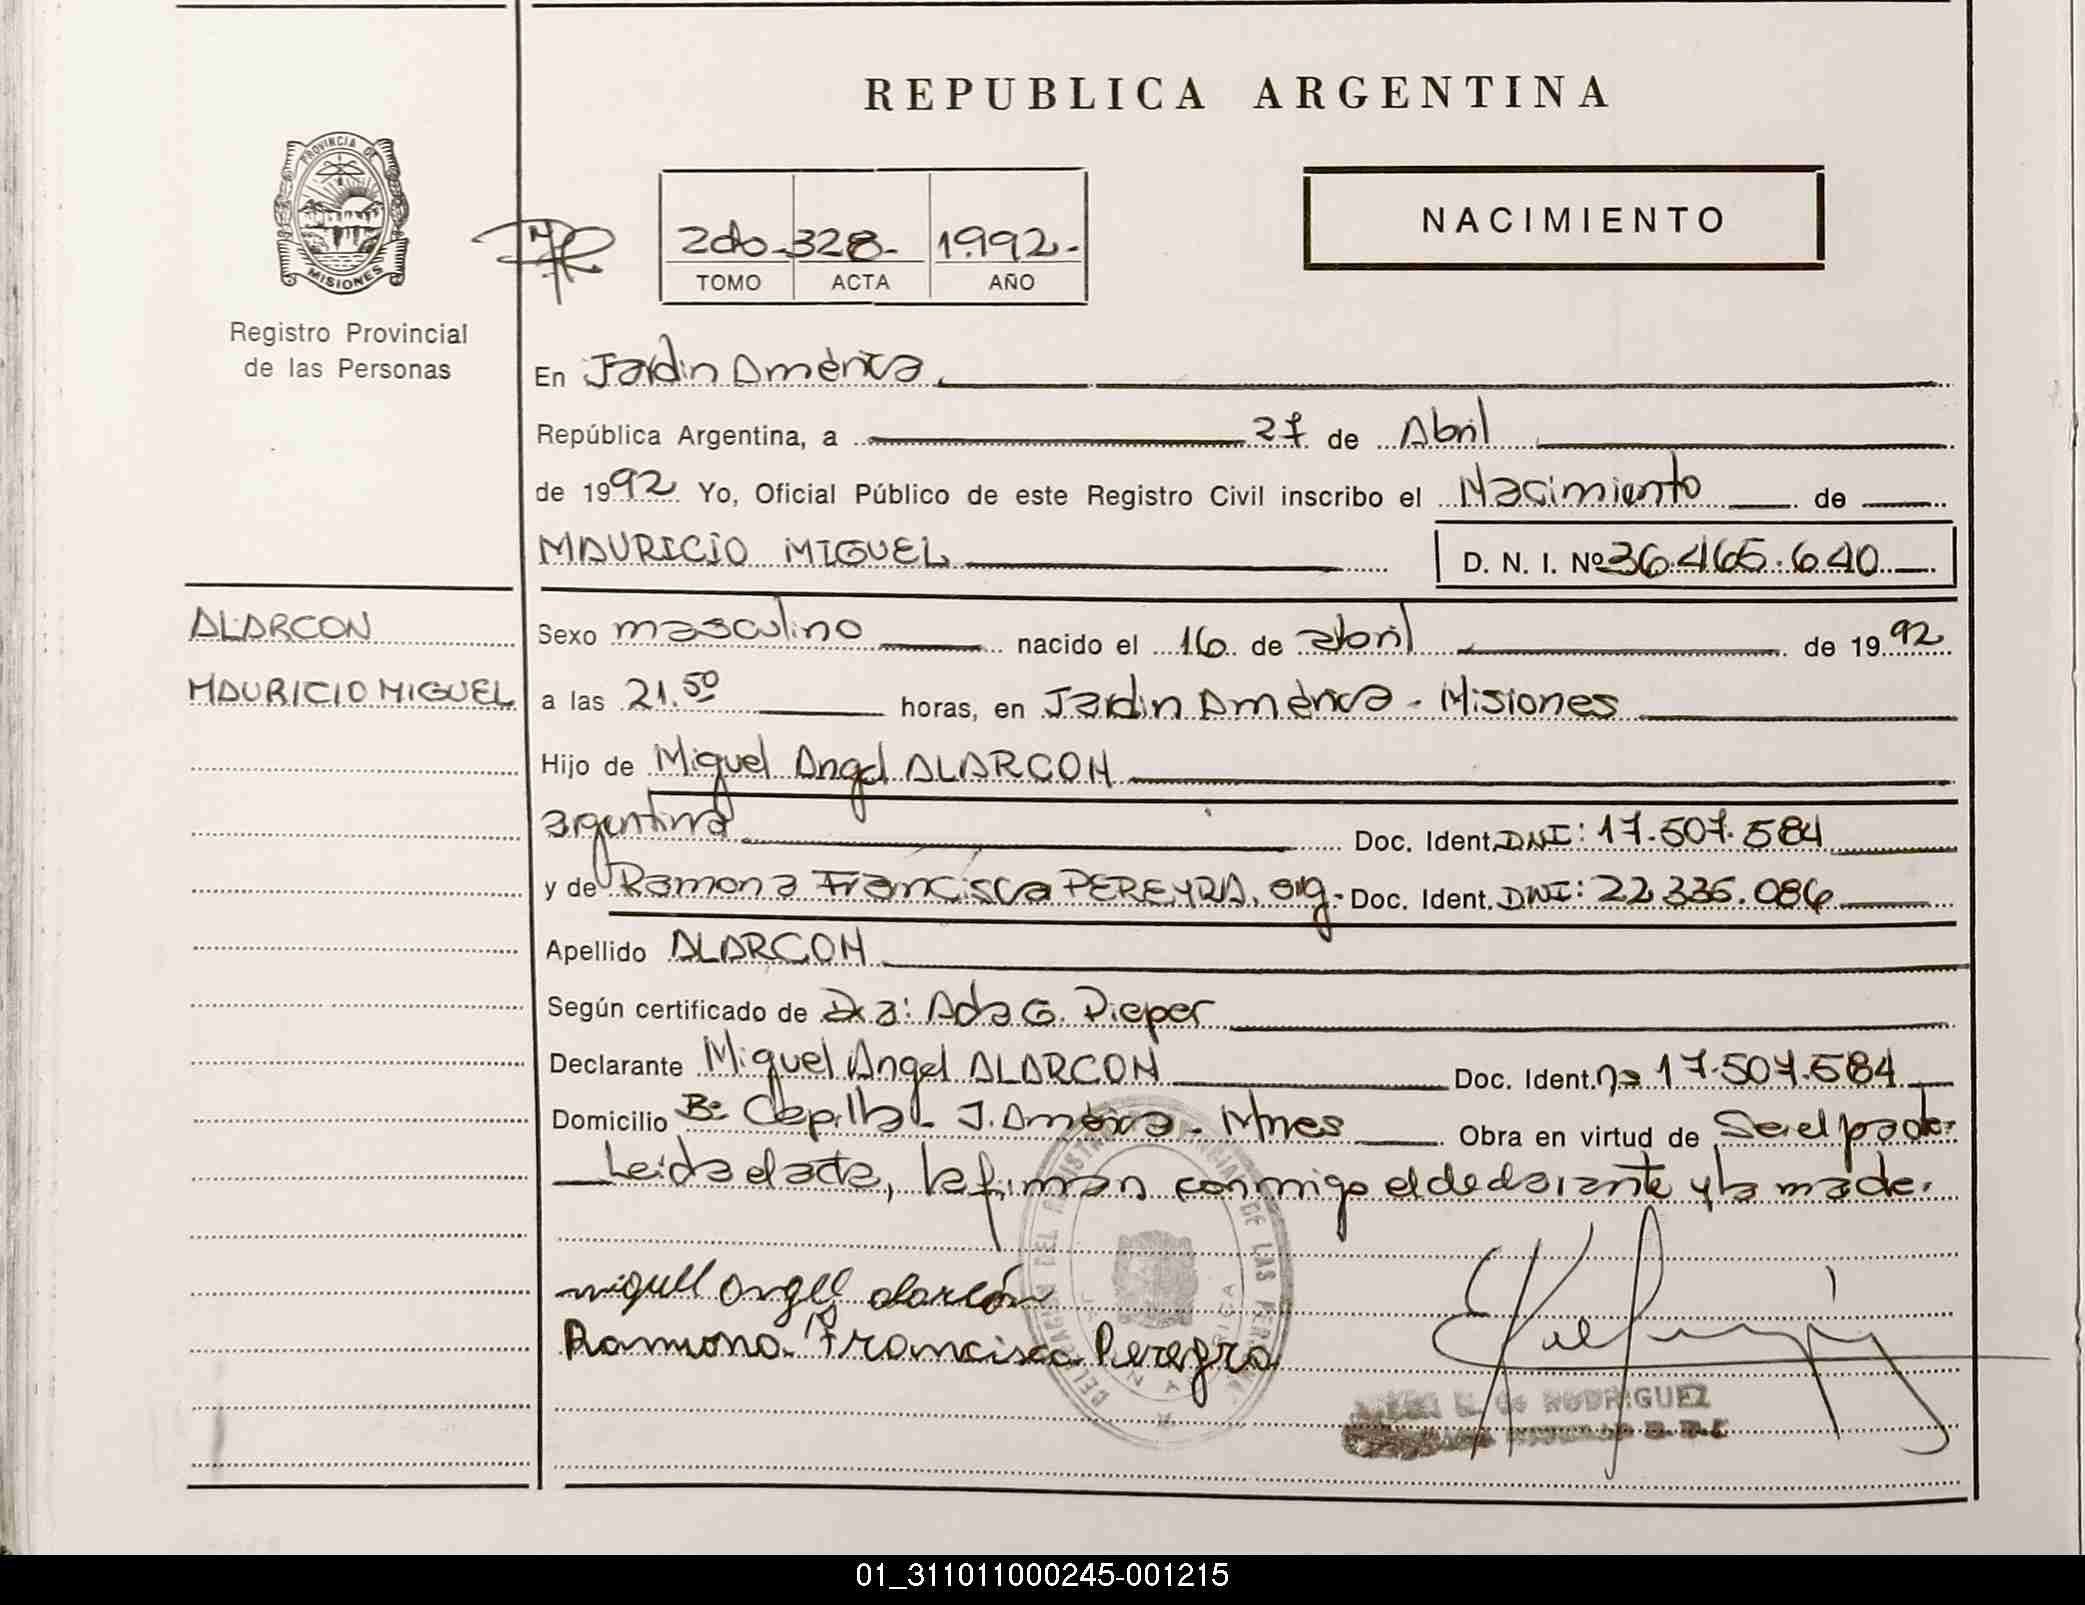 REPUBLICA ARGENTINA
PROVINCIA DE
MISIONES
Registro Provincial
de las Personas
2do - 328 - 1992 -
TOMO ACTA AÑO
NACIMIENTO
En Jardin América
República Argentina, a 27 de Abril
de 1992 Yo, Oficial Público de este Registro Civil inscribo el Nacimiento de
MAURICIO MIGUEL D. N. I. Nº 36.465.640
ALARCON
MAURICIO MIGUEL
Sexo masculino nacido el 16 de abril de 1992
a las 21.50 horas, en Jardin América - Misiones
Hijo de Miguel Angel ALARCON
argentina Doc. Ident. DNI: 17.507.584
y de Ramona Francisca PEREYRA, arg. Doc. Ident. DNI: 22.336.086
Apellido ALARCON
Según certificado de Dra: Ada G. Pieper
Declarante Miguel Angel ALARCON Doc. Ident. nº 17.507.584
Domicilio Bº Capilla - J. América - Mnes Obra en virtud de Ser el padre.
Leida el acta, la firman conmigo el declarante y la madre.
miguel angel alarcón
Ramona Francisca Pereyra
DELEGACION DEL REGISTRO PROVINCIAL DE LAS PERSONAS
de RODRIGUEZ
01_311011000245-001215